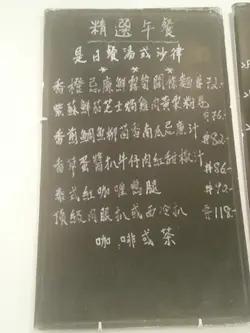 精選午餐
是日餐湯或沙律
香橙忌廉鮮露筍闊條麵 $72.-
紫蘇鮮茄芝士焗 肉 粉 $76.-
香煎鯛魚柳茴香南瓜忌廉汁 $82.-
香草蛋醬扒牛仔肉紅甜椒汁 $86.-
泰式紅咖喱鴨腿 $92.-
頂級肉眼扒或西冷扒 $118.-
咖啡或茶